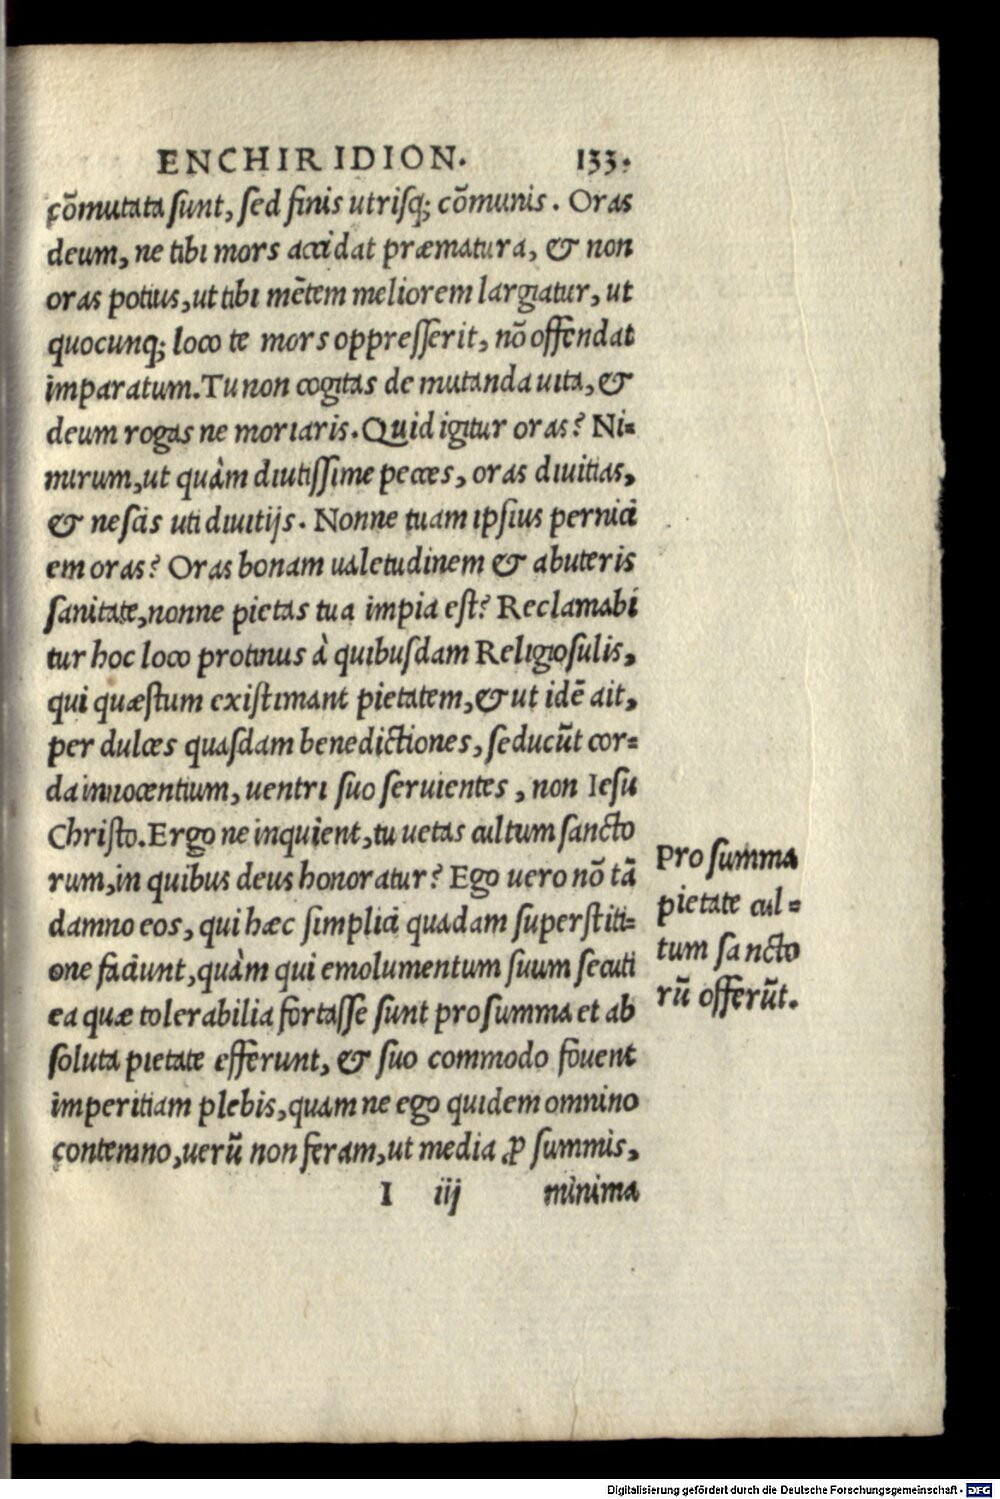 ENCHIRIDION. 133.
cõmutata sunt, sed finis utrisq; cõmunis. Oras
deum, ne tibi mors accidat præmatura, & non
oras potius, ut tibi mẽtem meliorem largiatur, ut
quocunq; loco te mors oppresserit, nõ offendat
imparatum. Tu non cogitas de mutanda uita, &
deum rogas ne moriaris. Quid igitur oras? Ni-
mirum, ut quàm diutissime pecces, oras diuitias,
& nescis uti diuitijs. Nonne tuam ipsius pernici
em oras? Oras bonam ualetudinem & abuteris
sanitate, nonne pietas tua impia est? Reclamabi
tur hoc loco protinus à quibusdam Religiosulis,
qui quæstum existimant pietatem, & ut idẽ ait,
per dulces quasdam benedictiones, seducũt cor-
da innocentium, uentri suo seruientes, non Iesu
Christo. Ergo ne inquient, tu uetas cultum sancto
rum, in quibus deus honoratur? Ego uero nõ tã
damno eos, qui hæc simplici quadam superstiti-
one faciunt, quàm qui emolumentum suum secuti
ea quæ tolerabilia fortasse sunt pro summa et ab
soluta pietate efferunt, & suo commodo fouent
imperitiam plebis, quam ne ego quidem omnino
contemno, uerũ non feram, ut media ꝓ summis,
I iij minima
Pro summa
pietate cul-
tum sancto
rũ offerũt.
Digitalisierung gefördert durch die Deutsche Forschungsgemeinschaft - DFG